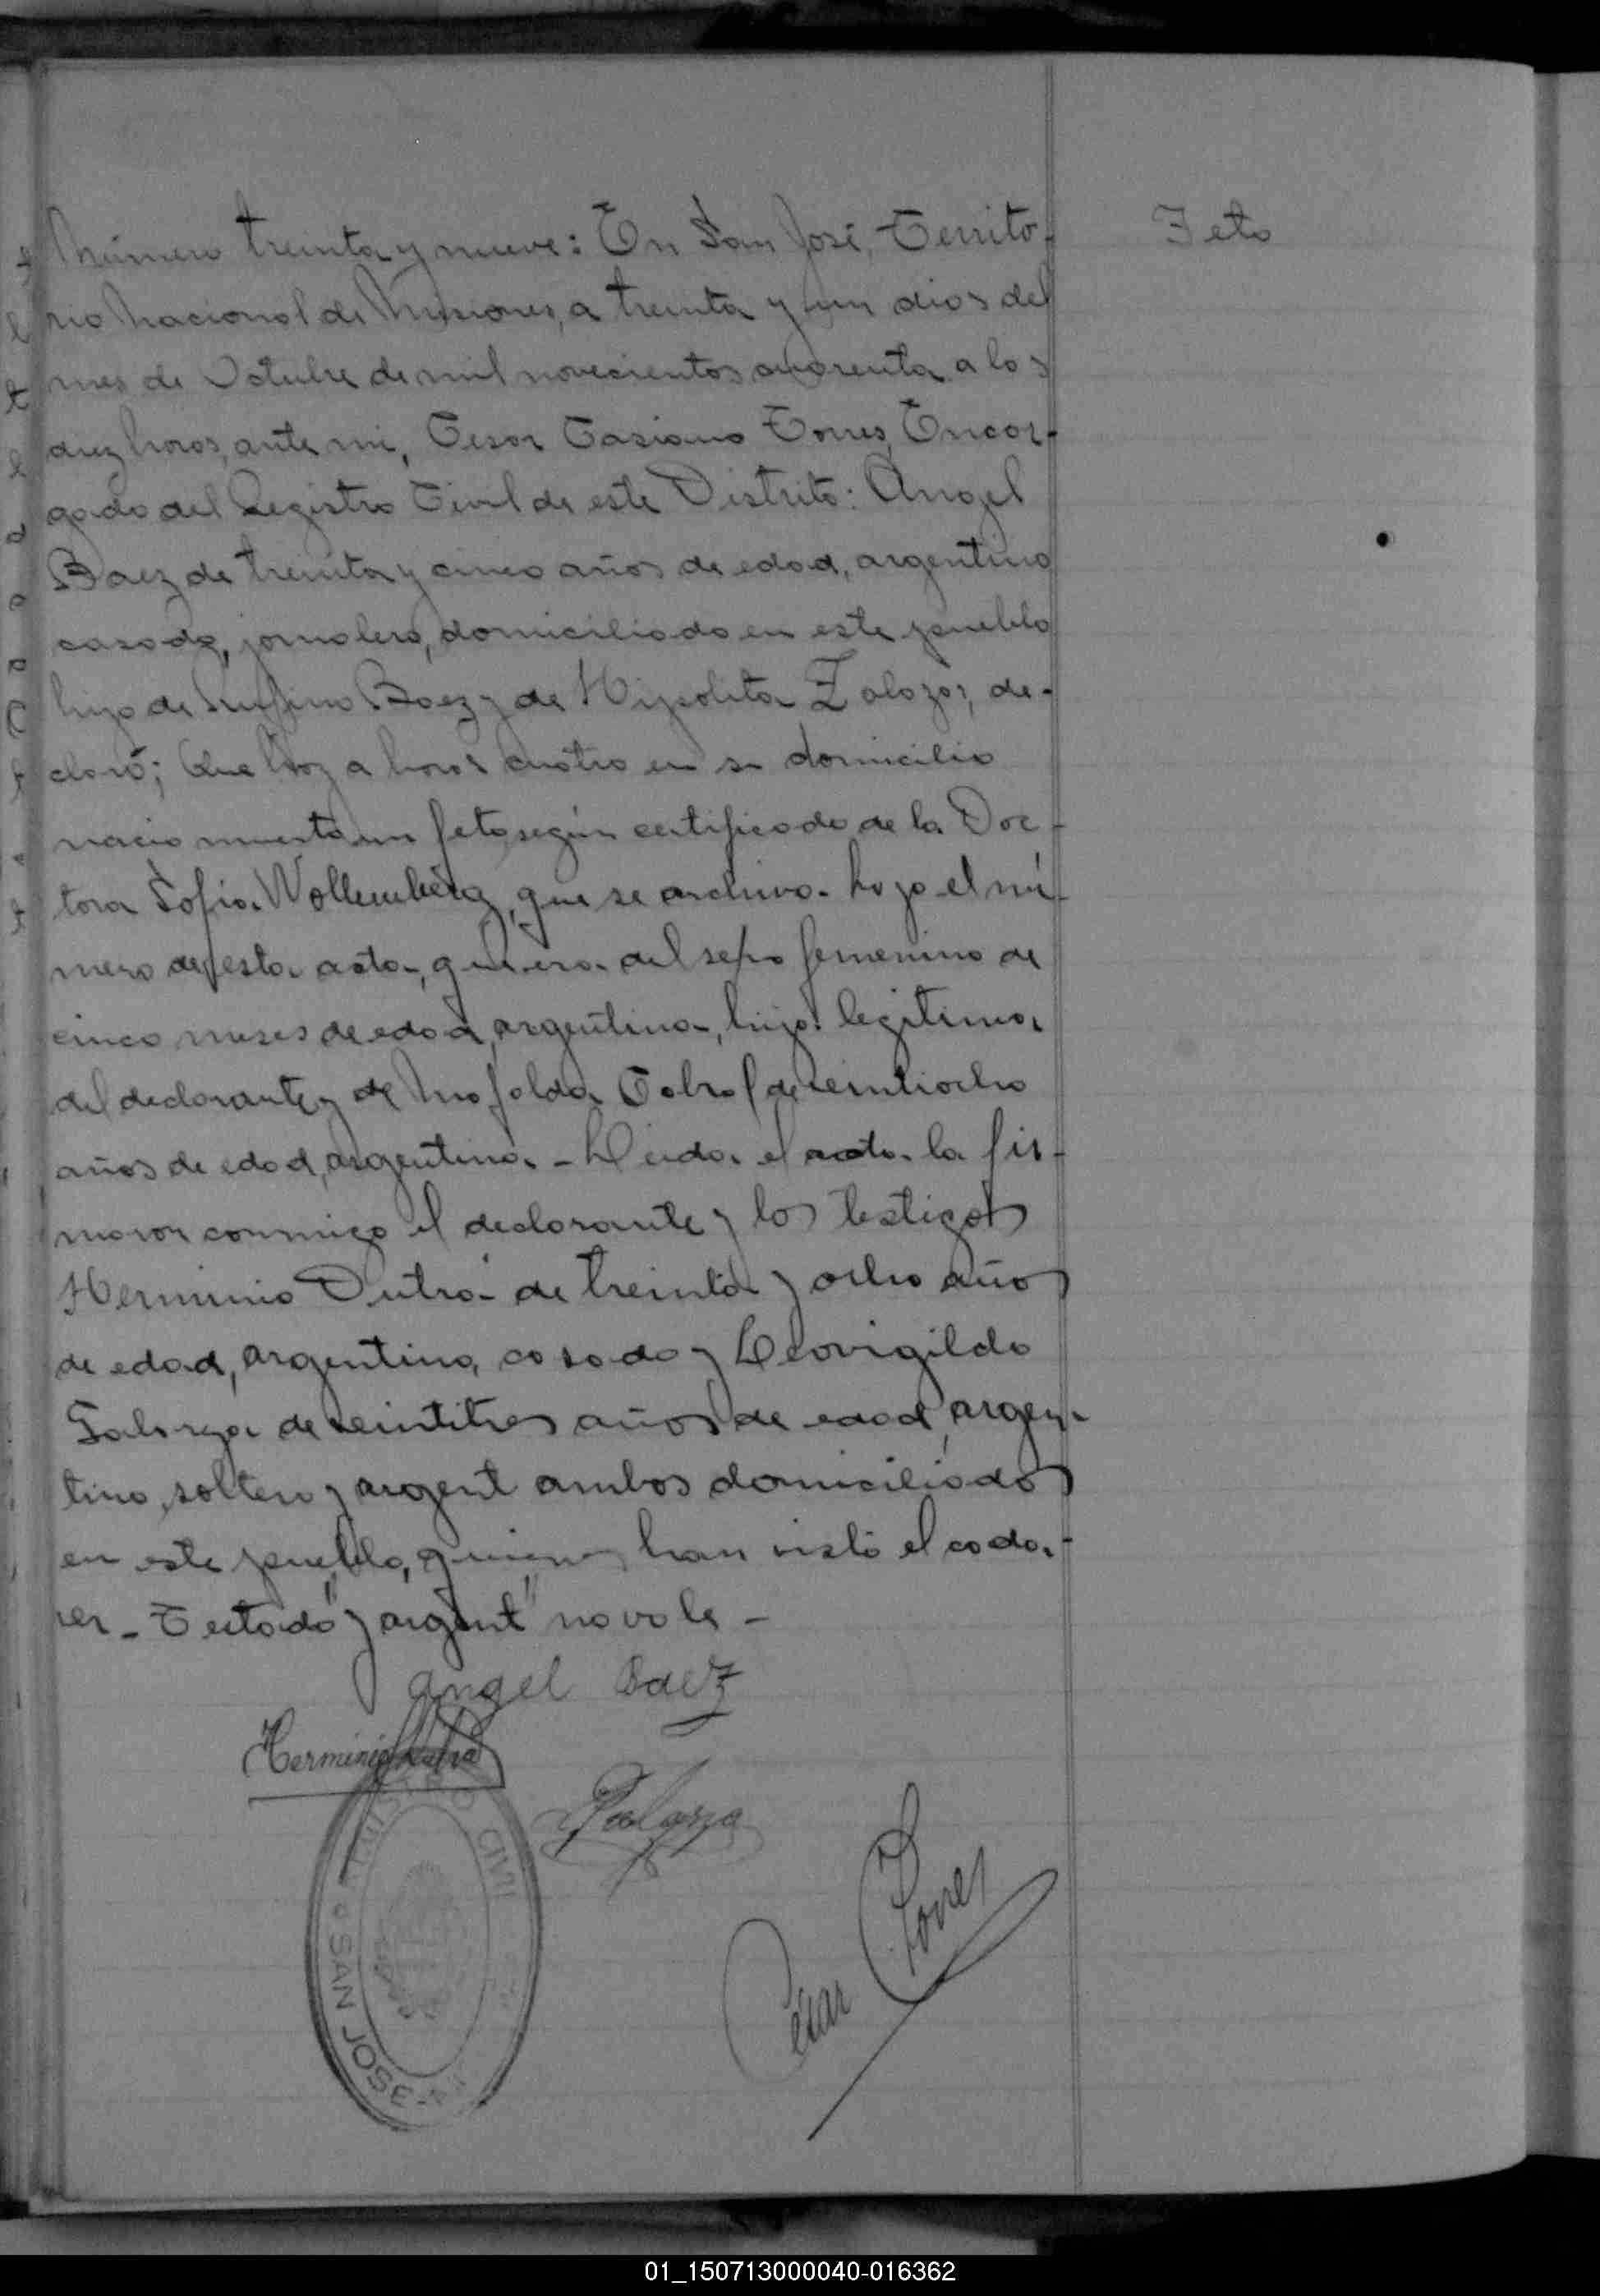 Número treinta y nueve: En San José, Territo-
rio Nacional de Misiones, a treinta y un dias del
mes de Octubre de mil novecientos cuarenta a las
diez horas, ante mi, Cesar Casiano Torres, Encar-
gado del Registro Civil de este Distrito: Angel
Baez de treinta y cinco años de edad, argentino
casado, jornalero, domiciliado en este pueblo
hijo de Rufino Baez y de Hipolita Zalazar, de-
claró; Que hoy a horas cuatro en su domicilio
nacio muerto un feto según certificado de la Doc-
tora Sofia Wollemberg, que se archiva bajo el nú-
mero de esta acta, que era del sexo femenino de
cinco meses de edad, argentina, hija legitima
del declarante y de Mafalda Cabral de veintiocho
años de edad, argentina. - Leida el acta la fir-
maron conmigo el declarante y los testigos
Herminio Dutra de treinta y ocho años
de edad, argentino, casado y Leovigildo
Galarza de veintitres años de edad, argen-
tino, soltero y argent ambos domiciliados
en este pueblo, quienes han visto el cada-
ver - Testado "y argent" no vale -
Feto
angel Baez
Herminio Dutra
Galarza
Cesar Torres
REGISTRO CIVIL
SAN JOSE
01_150713000040-016362